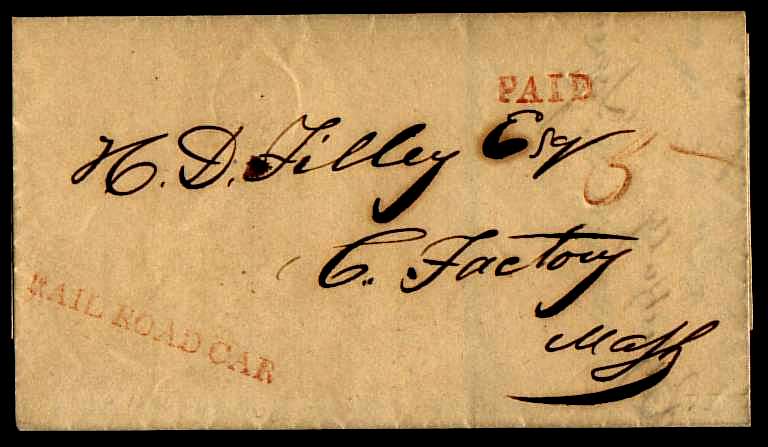 PAID
H. D. Filley Esqr
5
C. Factory
Mass
RAIL ROAD CAR